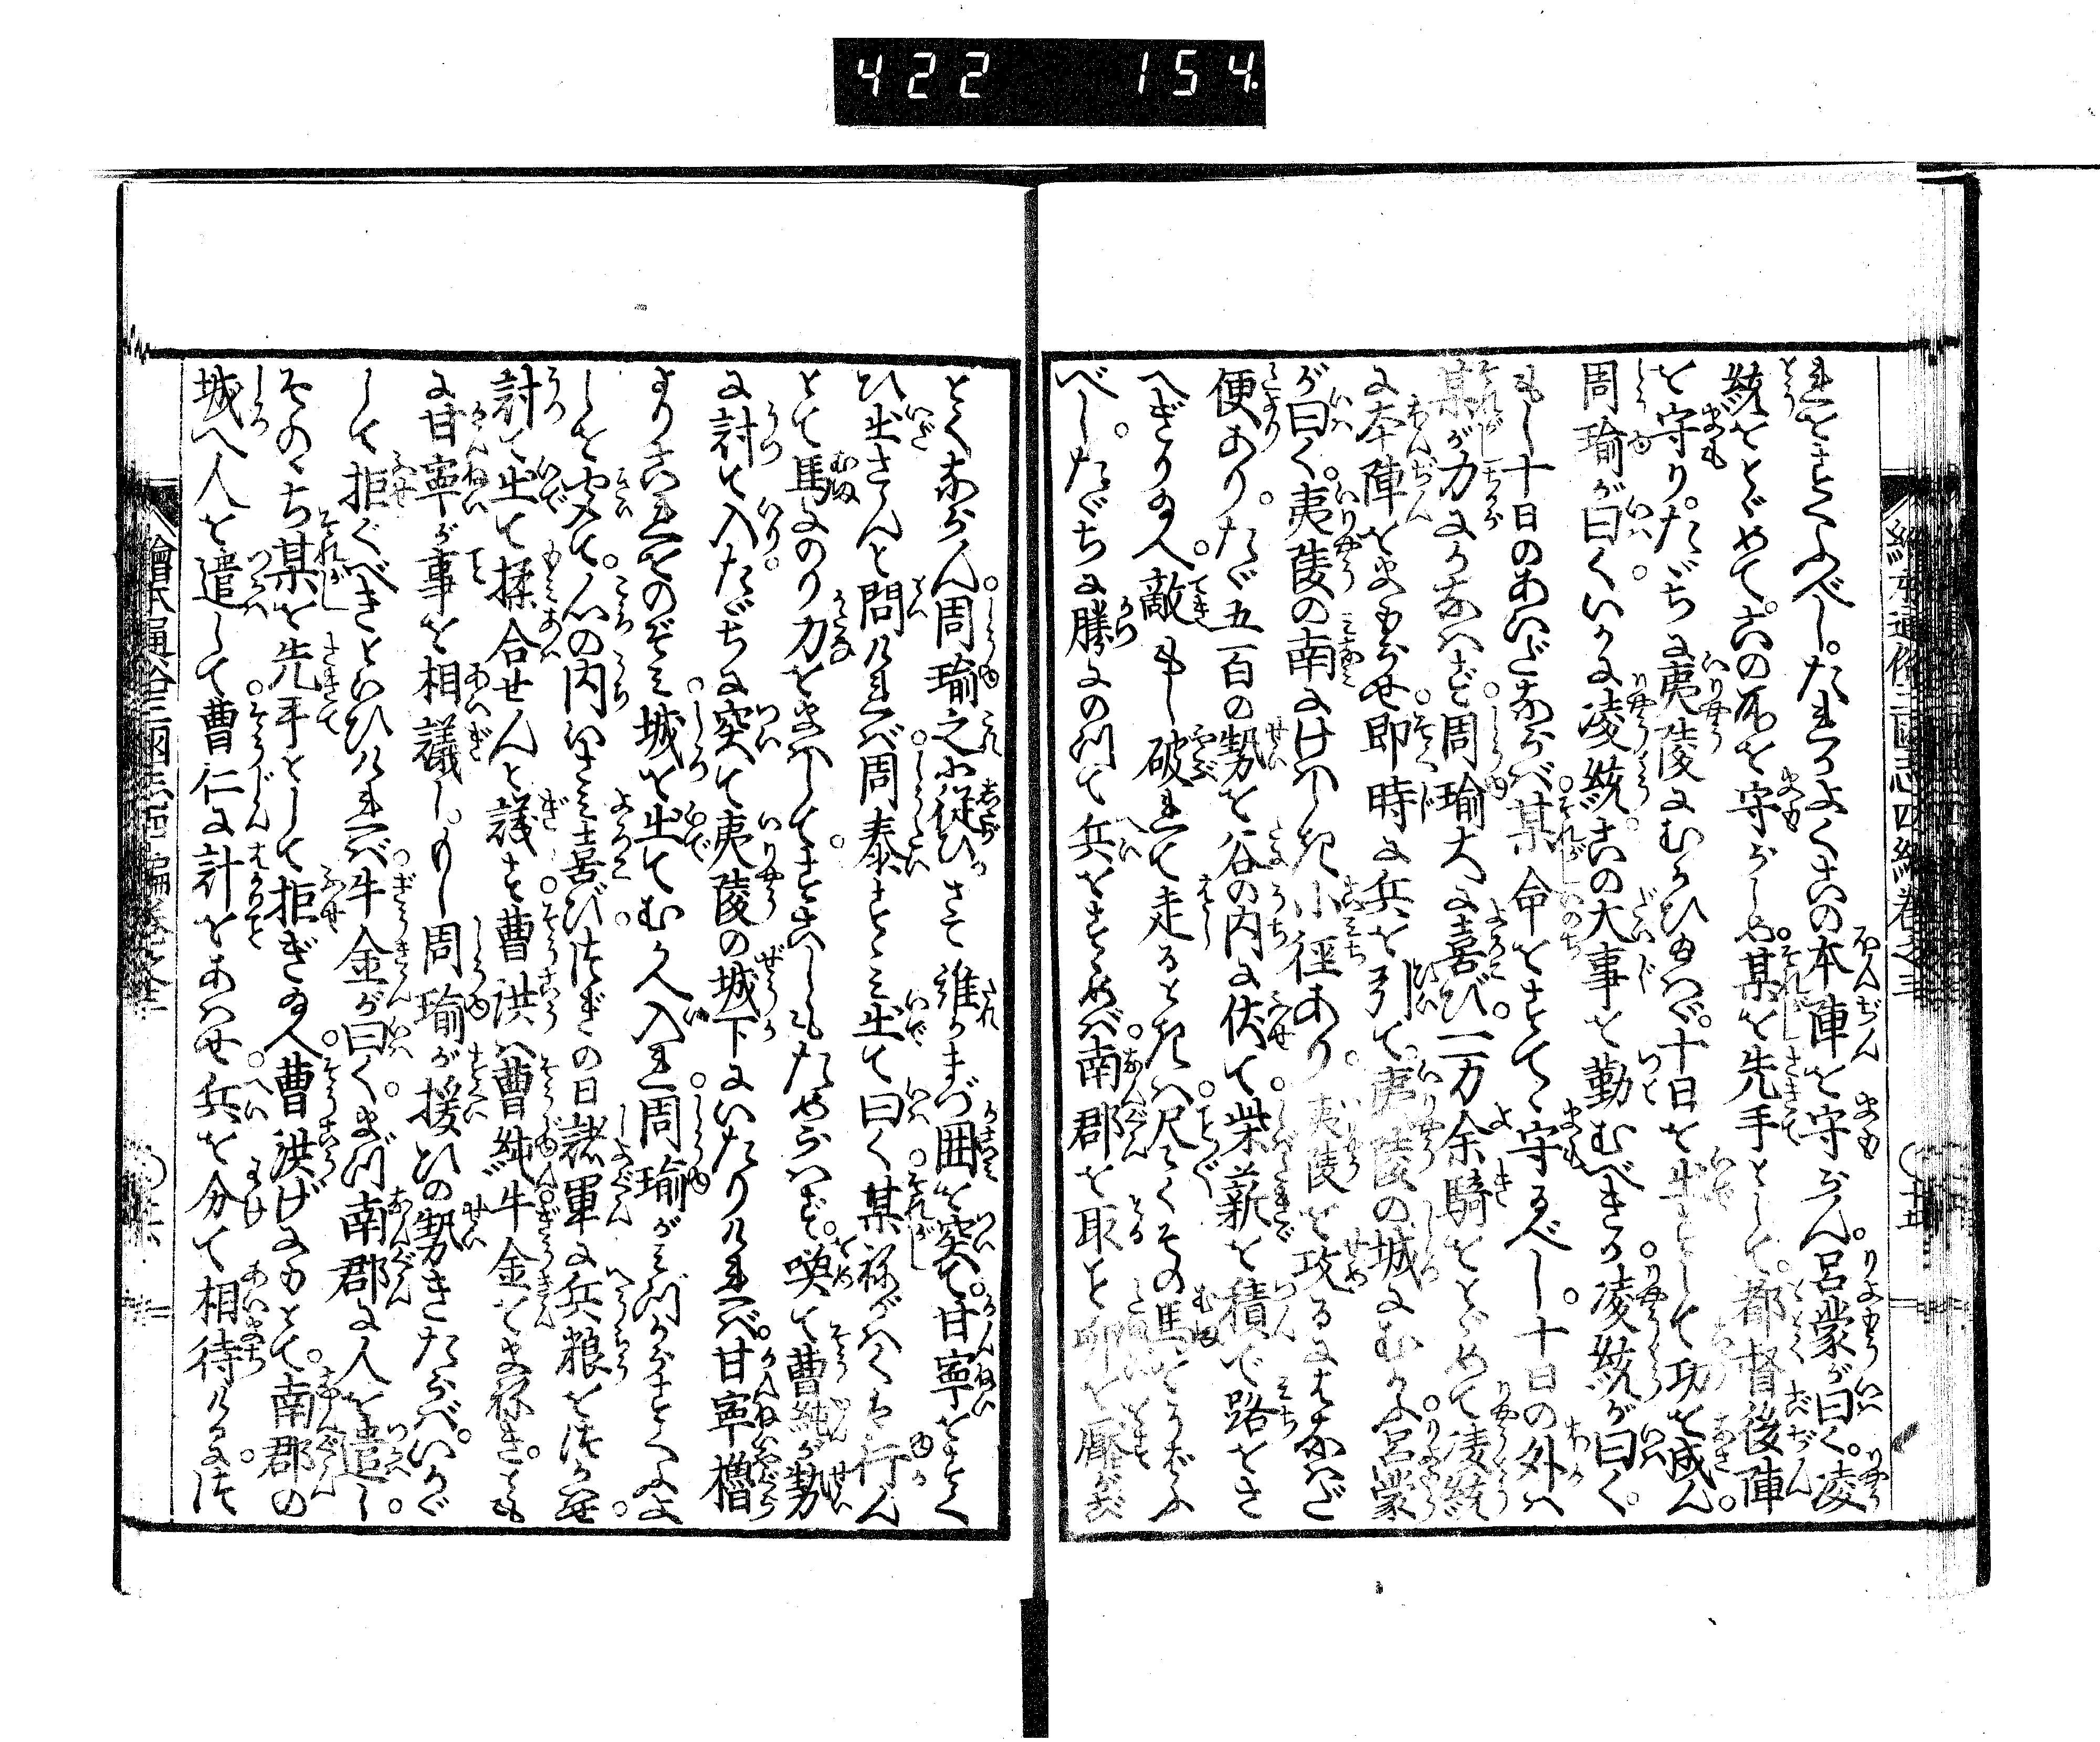 422 154.
繪本通俗三國志四編卷之三 ○十五
れをすくふべし。たれかよくこの本陣を守らん。呂蒙が曰く。凌
統をとゞめて。この所を守らしめ。某を先手として。都督後陣
を守り。たゞちに夷陵にむかひ給はゞ。十日を出ずして功を成ん。
周瑜が曰く。いかに凌統。この大事を勤むべきか。凌統が曰く。
もし十日のあひだならば。某命をすてゝ守るべし。十日の外は
某が力にかなはず。周瑜大に喜び。一万余騎をとゞめて凌統
に本陣をまもらせ。即時に兵を引て。夷陵の城にむかふ。呂蒙
が曰く。夷陵の南にけはしき小徑あり。夷陵を攻るにはなはだ
便あり。たゞ五百の勢を谷の内に伏て。柴薪を積で路をさ
へぎり給へ。敵もし破れて走るときは。尽くその馬をうばふ
べし。たゞちに勝にのつて兵をすゝめば。南郡を取と卵を壓がご
とくならん。周瑜之に從ひ。さて誰かまづ囲を突て。甘寧をすく
ひ出さんと問ければ。周泰すゝみ出て曰く。某ねがはくは行ん
とて。馬にのり刀をまはして。すこしもためらはず。喚て曹純が勢
に討て入。たゞちに突て夷陵の城下にいたりければ。甘寧櫓
よりこれをのぞみ。城を出てむかへ入れ。周瑜がみづからすくふよ
しを告て。心の内いさみ喜び。次の日諸軍に兵粮をつかはせ。
討て出て揉合せんと議す。曹洪は曹純牛金をまねき。とも
に甘寧が事を相議し。もし周瑜が援ひの勢きたらば。いかゞ
して拒ぐべきといひければ。牛金が曰く。まづ南郡に人を遣し。
そのゝち某を先手として拒ぎ給へ。曹洪げにもとて。南郡の
城へ人を遣して曹仁に計をあはせ。兵を分て相待けるに。
繪本通俗三國志四編卷之三 ○十六